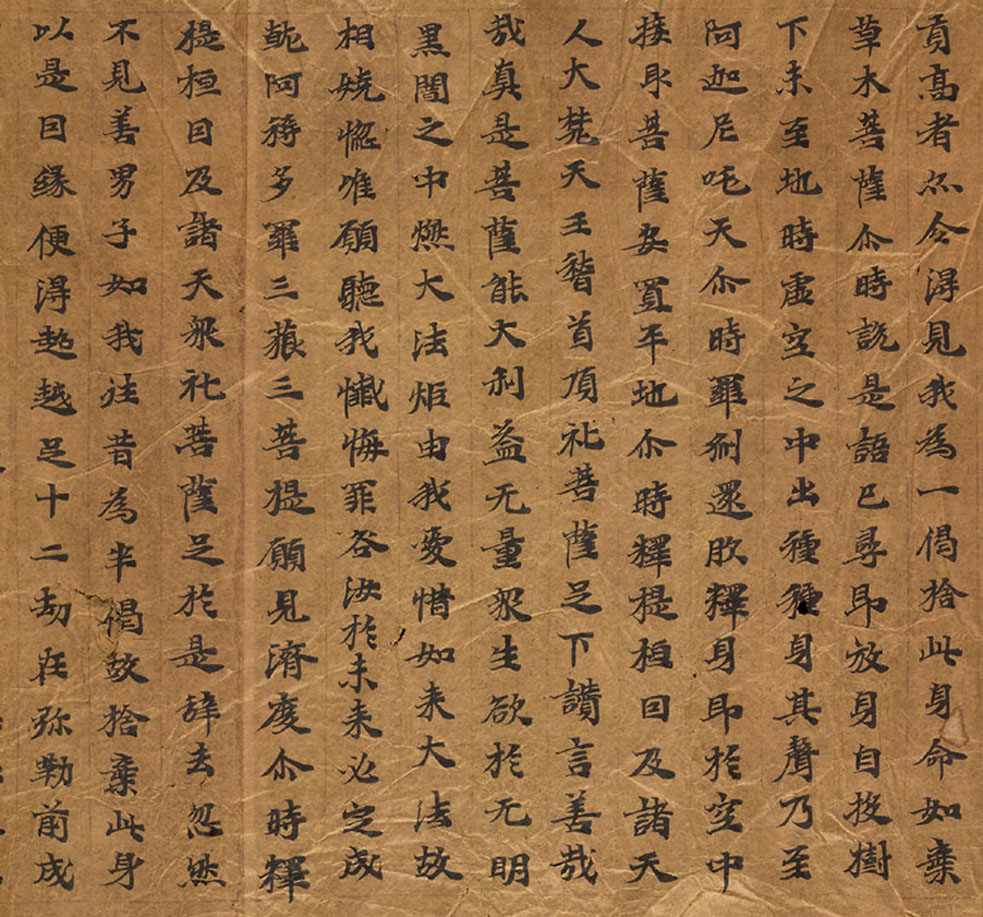 貢高者亦令得見我為一偈捨此身命如棄
草木菩薩尒時說是語已尋即放身自投樹
下未至地時虛空之中出種種身其聲乃至
阿迦尼吒天尒時羅刹還復釋身即於空中
接取菩薩安置平地尒時釋提桓因及諸天
人大梵天王稽首頂礼菩薩足下讚言善哉
哉真是菩薩能大利益无量衆生欲於无明
黑闇之中燃大法炬由我愛惜如来大法故
相嬈惱唯願聽我懺悔罪咎汝於未来必定成
就阿耨多羅三藐三菩提願見濟度尒時釋
提桓因及諸天衆礼菩薩足於是辞去忽然
不見善男子如我往昔為半偈故捨棄此身
以是因緣便得超越足十二劫在弥勒前成